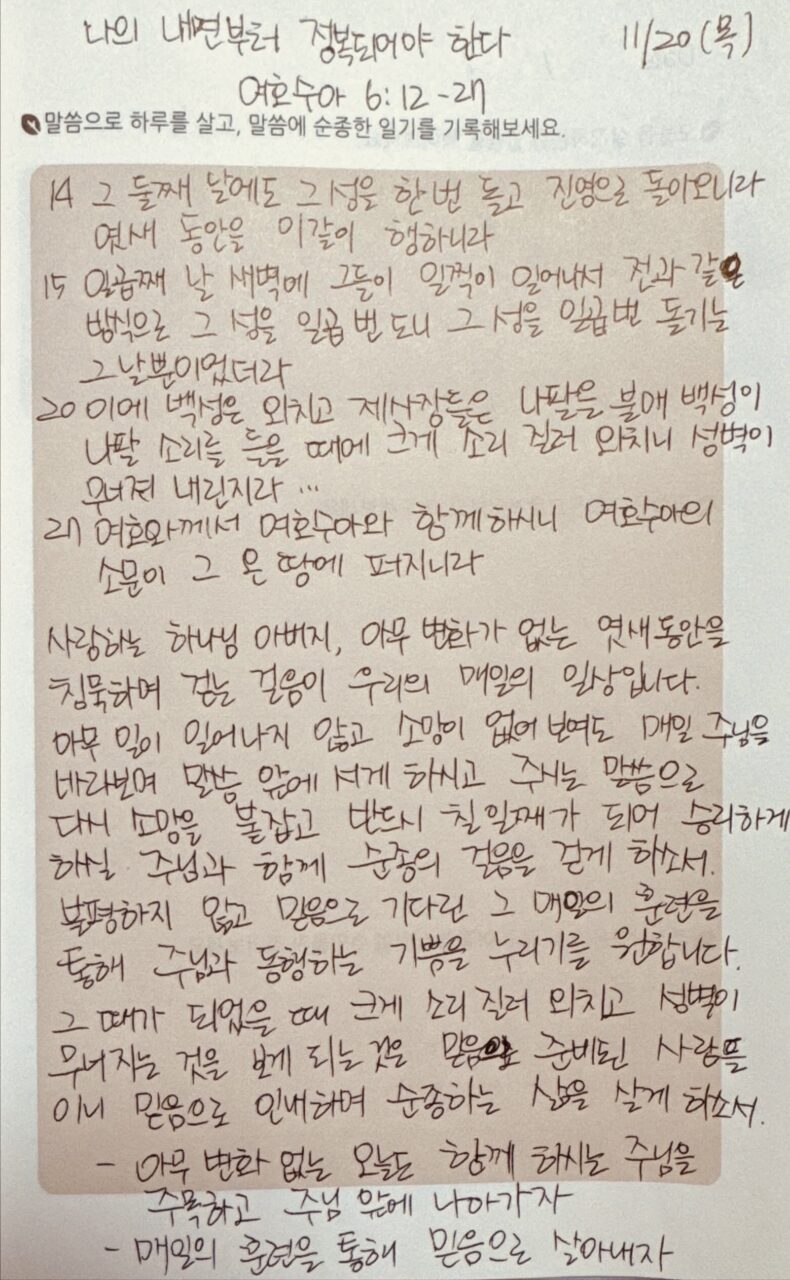 나의 내면부터 정복되어야 한다 11/20(목)
여호수아 6:12-27
말씀으로 하루를 살고, 말씀에 순종한 일기를 기록해보세요.
14 그 둘째 날에도 그 성을 한 번 돌고 진영으로 돌아오니라
엿새 동안을 이같이 행하니라
15 일곱째 날 새벽에 그들이 일찍이 일어나서 전과 같은
방식으로 그 성을 일곱 번 도니 그 성을 일곱 번 돌기는
그날뿐이었더라
20 이에 백성은 외치고 제사장들은 나팔을 불매 백성이
나팔 소리를 들을 때에 크게 소리 질러 외치니 성벽이
무너져 내린지라 …
27 여호와께서 여호수아와 함께 하시니 여호수아의
소문이 그 온 땅에 퍼지니라
사랑하는 하나님 아버지, 아무 변화가 없는 엿새 동안을
침묵하며 걷는 걸음이 우리의 매일의 일상입니다.
아무 일이 일어나지 않고 소망이 없어 보여도 매일 주님을
바라보며 말씀 앞에 서게 하시고 주시는 말씀으로
다시 소망을 붙잡고 반드시 칠일째가 되어 승리하게
하실 주님과 함께 순종의 걸음을 걷게 하소서.
불평하지 않고 믿음으로 기다린 그 매일의 훈련을
통해 주님과 동행하는 기쁨을 누리기를 원합니다.
그 때가 되었을 때 크게 소리 질러 외치고 성벽이
무너지는 것을 보게 되는 것은 믿음으로 준비된 사람들
이니 믿음으로 인내하며 순종하는 삶을 살게 하소서.
- 아무 변화 없는 오늘도 함께 하시는 주님을
주목하고 주님 앞에 나아가자
- 매일의 훈련을 통해 믿음으로 살아내자